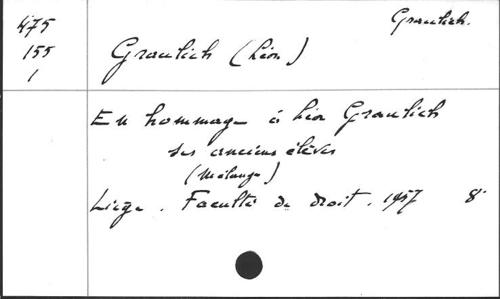 475
155
1
Graulich.
Graulich (Léon)
En hommage à Léon Graulich
ses anciens élèves
(Mélanges)
Liège. Faculté de droit. 1957 8°